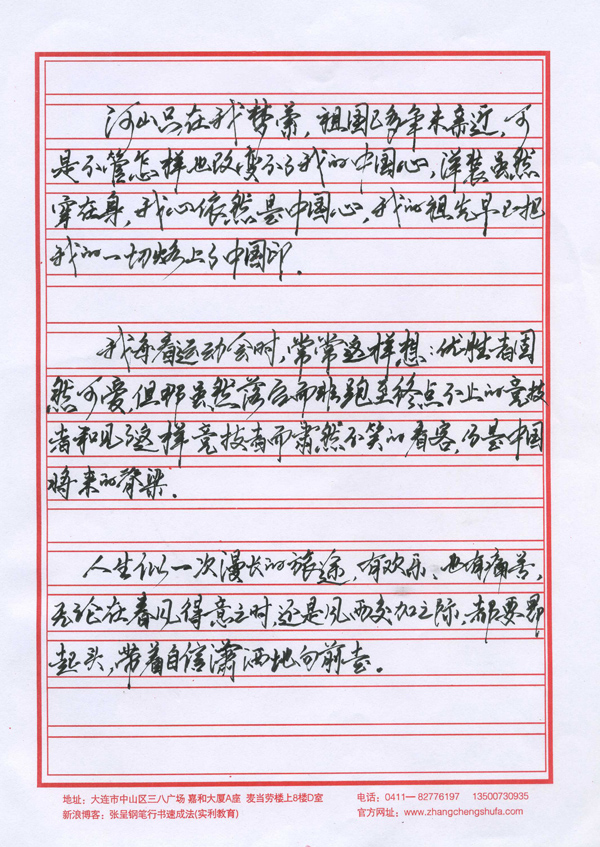 河山只在我梦萦，祖国已多年未亲近，可
是不管怎样也改变不了我的中国心，洋装虽然
穿在身，我心依然是中国心，我的祖先早已把
我的一切烙上了中国印．
我每看运动会时，常常这样想：优胜者固
然可爱，但那虽然落后而非跑至终点不止的竞技
者和见了这样竞技者而肃然不笑的看客，乃是中国
将来的脊梁．
人生似一次漫长的旅途，有欢乐、也有痛苦，
无论在春风得意之时，还是风雨交加之际，都要昂
起头，带着自信潇洒地向前走。
地址：大连市中山区三八广场 嘉和大厦A座 麦当劳楼上8楼D室 电话：0411—82776197 13500730935
新浪博客：张呈钢笔行书速成法(实利教育) 官方网址：www.zhangchengshufa.com